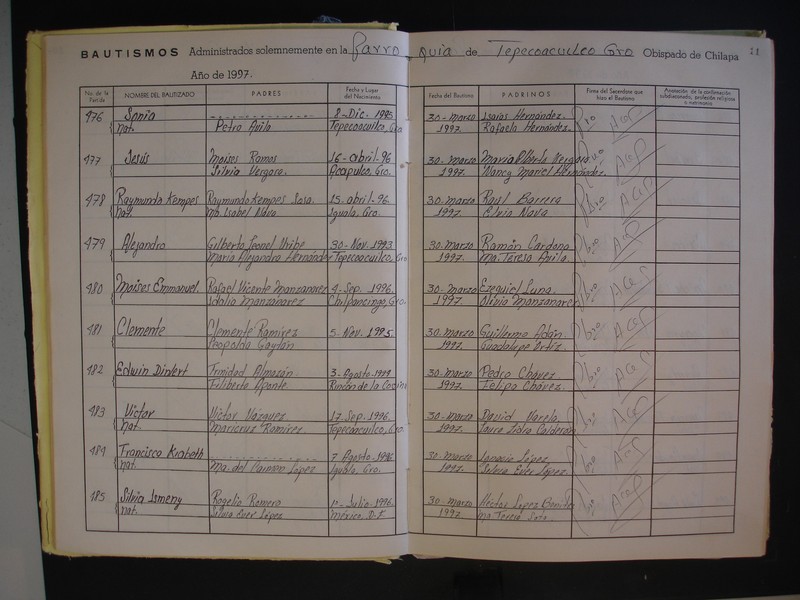 BAUTISMOS Administrados solemnemente en la Parro - quia de Tepecoacuilco Gro Obispado de Chilapa
Año de 1997.
No. de la Partida NOMBRE DEL BAUTIZADO PADRES Fecha y Lugar del Nacimiento Fecha del Bautismo PADRINOS Firma del Sacerdote que hizo el Bautismo Anotación de la confirmación subdiaconado, profesión religiosa o matrimonio
476 Sonia 8-Dic. 1995 30-Marzo Isaias Hernández.
Nat. Petra Avila Tepecoacuilco, Gro 1997. Rafaela Hernández.
477 Jesús Moises Ramos 16-abril-96 30. marzo Maria Alberta Vergara
Silvia Vergara. Acapulco, Gro. 1997. Nancy Mariel Hernández.
478 Raymundo Kempes Raymundo Kempes Sosa. 15. abril-96. 30. marzo Raúl Barrera
Nat. Ma. Isabel Nava Iguala, Gro. 1997 Elvia Nava
479 Alejandro Gilberto Leonel Uribe 30-Nov. 1993 30-marzo Ramón Cardona
Maria Alejandra Hernández Tepecoacuilco, Gro 1997. Ma. Teresa Avila.
480 Moises Emmanuel Rafael Vicente Manzanarez 4-Sep. 1996. 30-marzo Ezequiel Luna.
Idalia Manzanarez Chilpancingo, Gro. 1997. Manzanarez
481 Clemente Clemente Ramirez 5. Nov. 1995. 30-marzo Guillermo Adán.
Leopolda Gaytán 1997. Guadalupe Ortiz.
482 Edwin Trinidad Almazán. 3-Agosto 30-marzo Pedro Chávez
Filiberta Aponte. Rincón de la Cocina 1997. Felipa Chávez.
483 Victor Victor Vázquez 17 Sep. 1996. 30-Marzo David Varela.
Nat. Maricruz Ramirez Tepecoacuilco, Gro 1997. Laura Lidia Calderón
484 Francisco 7 Agosto 1996 30-Marzo Ignacio López.
Nat. Ma. del Carmen López Iguala, Gro. 1997. Silvia Ever López.
485 Silvia Ismeny Rogelio Romero 1º-Julio-1996. 30-marzo Hector Lopez Benitez
Nat. Silvia Ever López México. D.F. 1997 Ma. Teresa Soto